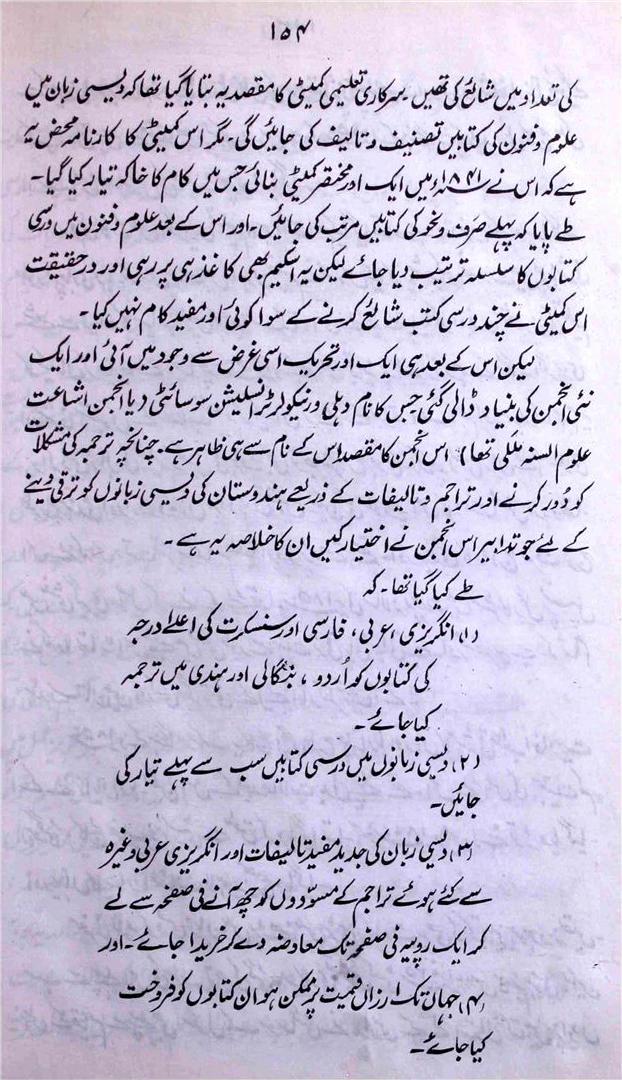 ۱۵۴
کی تعداد میں شائع کی تھیں۔ سرکاری تعلیمی کمیٹی کا مقصد یہ بتایا گیا تھا کہ دیسی زبان میں
علوم و فنون کی کتابیں تصنیف و تالیف کی جائیں گی۔ مگر اس کمیٹی کا کارنامہ محض یہ
ہے کہ اس نے ۱۸۴۱ء میں ایک اور مختصر کمیٹی بنائی جس میں کام کا خاکہ تیار کیا گیا۔
طے پایا کہ پہلے صرف و نحو کی کتابیں مرتب کی جائیں۔ اور اس کے بعد علوم و فنون میں درسی
کتابوں کا سلسلہ ترتیب دیا جائے لیکن یہ اسکیم بھی کاغذ ہی پر رہی اور در حقیقت
اس کمیٹی نے چند درسی کتب شائع کرنے کے سوا کوئی اور مفید کام نہیں کیا۔
لیکن اس کے بعد ہی ایک اور تحریک اسی غرض سے وجود میں آئی اور ایک
نئی انجمن کی بنیاد ڈالی گئی جس کا نام دہلی ورنیکولر ٹرانسلیشن سوسائٹی (یا انجمن اشاعت
علوم السنہ ملکی تھا) اس انجمن کا مقصد اس کے نام سے ہی ظاہر ہے۔ چنانچہ ترجمہ کی مشکلات
کو دُور کرنے اور تراجم و تالیفات کے ذریعے ہندوستان کی دیسی زبانوں کو ترقی دینے
کے لئے جو تدابیر اس انجمن نے اختیار کیں ان کا خلاصہ یہ ہے۔
طے کیا گیا تھا۔ کہ
(۱) انگریزی، عربی، فارسی اور سنسکرت کی اعلےٰ درجہ
کی کتابوں کو اُردو، بنگالی اور ہندی میں ترجمہ
کیا جائے۔
(۲) دیسی زبانوں میں درسی کتابیں سب سے پہلے تیار کی
جائیں۔
(۳) دیسی زبان کی جدید مفید تالیفات اور انگریزی عربی وغیرہ
سے کئے ہوئے تراجم کے مسودوں کو چھ آنے فی صفحہ سے لے
کر ایک روپیہ فی صفحہ تک معاوضہ دے کر خریدا جائے۔ اور
(۴) جہاں تک ارزاں قیمت پر ممکن ہو ان کتابوں کو فروخت
کیا جائے۔